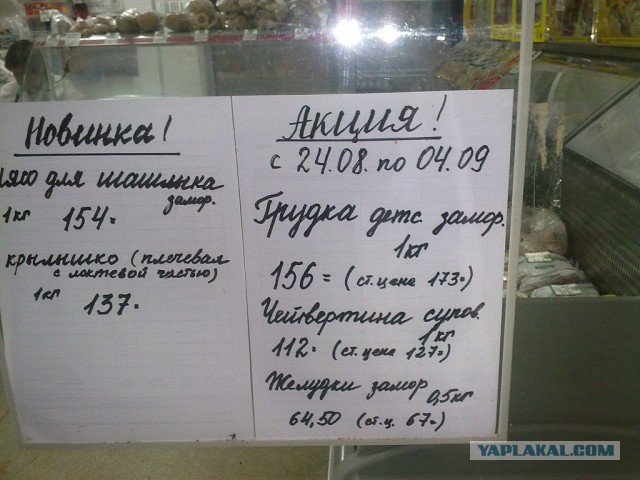 Новинка!
Мясо для шашлыка
замор.
1кг 154=
крылышко (плечевая
с локтевой частью)
1кг 137=
Акция!
с 24.08. по 04.09
Грудка детс. замор.
1кг
156= (ст. цена 173=)
Четвертина супов.
1кг
112= (ст. цена 127=)
Желудки замор
0,5кг
64,50 (ст.ц. 67=)
YAPLAKAL.COM